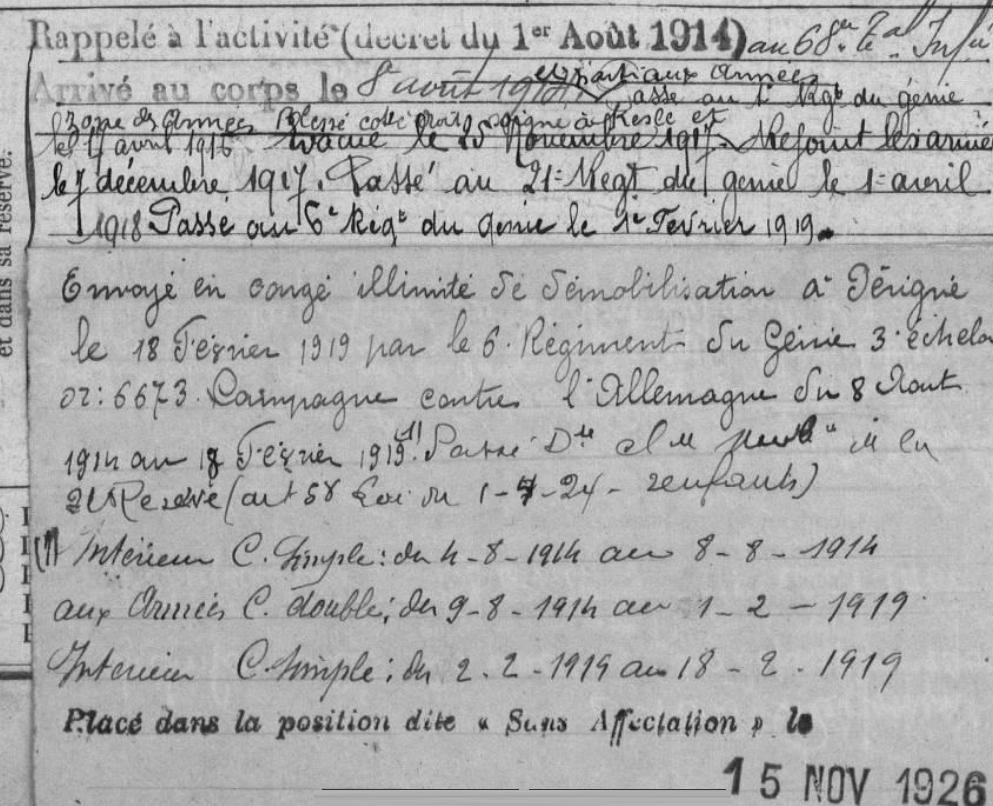 Rappelé à l'activité (décret du 1er Août 1914) au 68e
Arrivé au corps le 8 août 1914 et parti aux Armées
passé au 1er Régt du génie
Zone des Armées Blessé côté droit soigné à Nesle et
le 17 avril 1916 évacué le 25 Novembre 1917. Rejoint les armées
le 7 décembre 1917. Passé au 21e Régt du génie le 1er avril
1918 Passé au 6e Régt du génie le 1er Février 1919.
Envoyé en congé illimité de démobilisation à Périgné
le 18 Février 1919 par le 6e Régiment du Génie 3e échelon
6673. Campagne contre l'Allemagne du 8 Aout
1914 au 18 Février 1919. (1) Passé
Réserve (art 58 Loi du 1-4-24 - 2 enfants)
(1) Intérieur C. Simple: du 4-8-1914 au 8-8-1914
aux Armées C. double; du 9-8-1914 au 1-2-1919
Intérieur C. Simple; du 2.2-1919 au 18-2-1919
Placé dans la position dite « Sans Affectation » le
15 NOV 1926
et dans sa réserve.